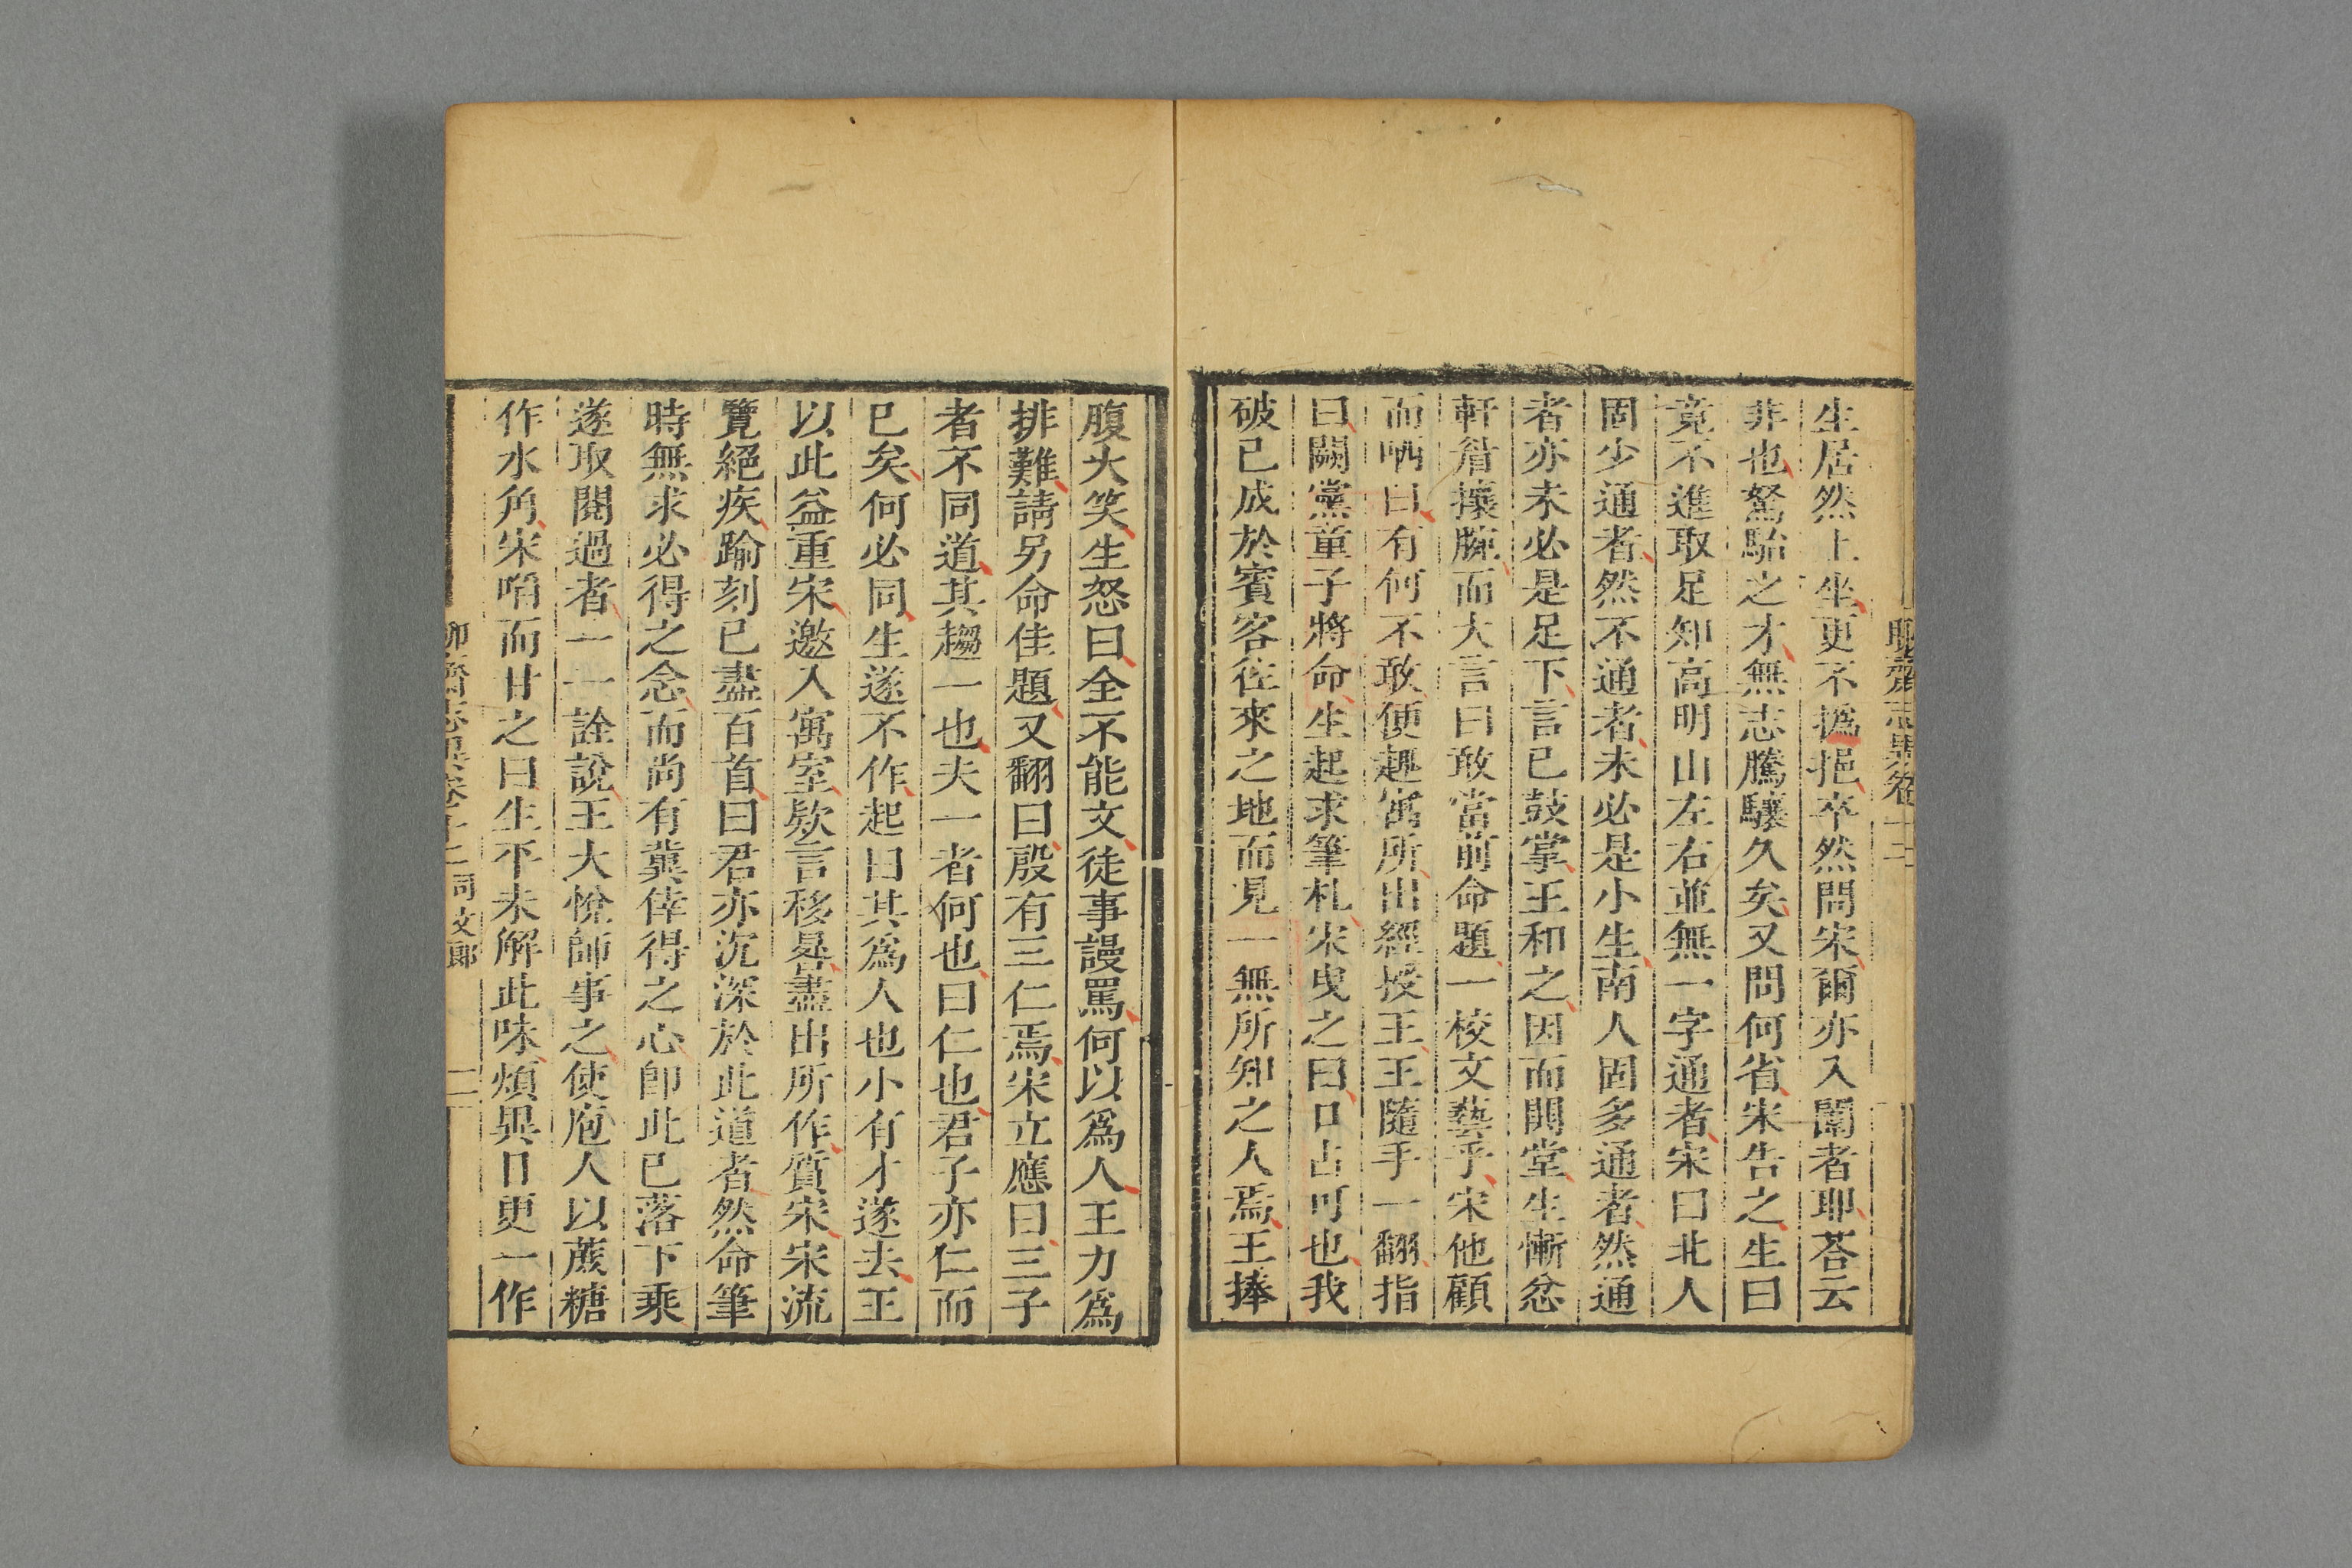 聊齋志異卷十二
生居然上坐更不撝挹卒然問宋爾亦入闈者耶荅云
非也駑駘之才無志騰驤久矣又問何省宋告之生曰
竟不進取足知高明山左右並無一字通者宋曰北人
固少通者然不通者未必是小生南人固多通者然通
者亦未必是足下言已鼓掌王和之因而閧堂生慚忿
軒眉攘腕而大言曰敢當前命題一校文藝乎宋他顧
而哂曰有何不敢便趨寓所出經授王王隨手一翻指
曰闕黨童子將命生起求筆札宋曳之曰口占可也我
破已成於賓客往來之地而見一無所知之人焉王捧
腹大笑生怒曰全不能文徒事謾罵何以爲人王力爲
排難請另命佳題又翻曰殷有三仁焉宋立應曰三子
者不同道其趨一也夫一者何也曰仁也君子亦仁而
已矣何必同生遂不作起曰其爲人也小有才遂去王
以此益重宋邀入寓室欵言移晷盡出所作質宋宋流
覽絕疾踰刻已盡百首曰君亦沉深於此道者然命筆
時無求必得之念而尚有冀倖得之心卽此已落下乘
遂取閱過者一一詮說王大悅師事之使庖人以蔗糖
作水角宋啗而甘之曰生平未解此味煩異日更一作
聊齋志異卷十二 司文郎 二